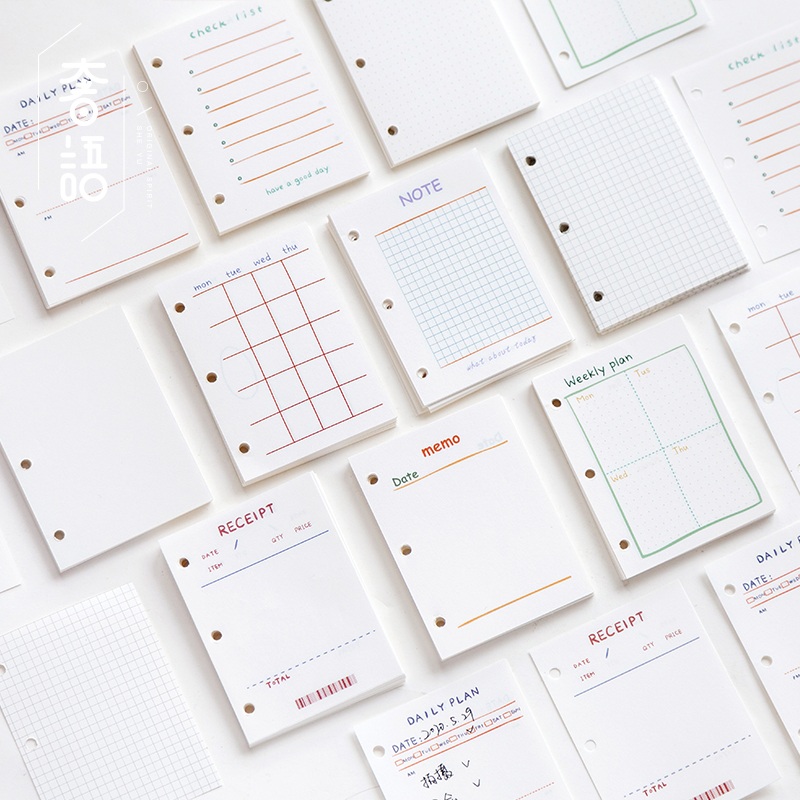 DAILY PLAN
DATE:
AM
PM
check list
have a good day
check list
NOTE
what about today
mon tue wed thu
mon tue
Weekly plan
Mon Tus
Wed Thu
memo
Date
RECEIPT
DATE / QTY PRICE
ITEM
TOTAL
RECEIPT
DATE / QTY PRICE
ITEM
TOTAL
DAILY PLAN
DATE: 2020.5.29
AM
拍摄 ✓
DAILY P
DATE:
AM